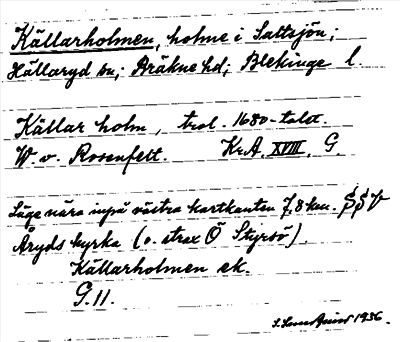 Källarholmen, holme i Saltsjön;
Hällaryd sn; Bräkne hd; Blekinge l.
Källar holm, trol. 1680-talet.
W. v. Rosenfelt. Kr.A. XVIII. G.
Läge nära inpå västra kartkanten 7,8 km. SSV
Åryds kyrka (o. strax Ö Styrsö).
Källarholmen ek.
G.11.
1936.